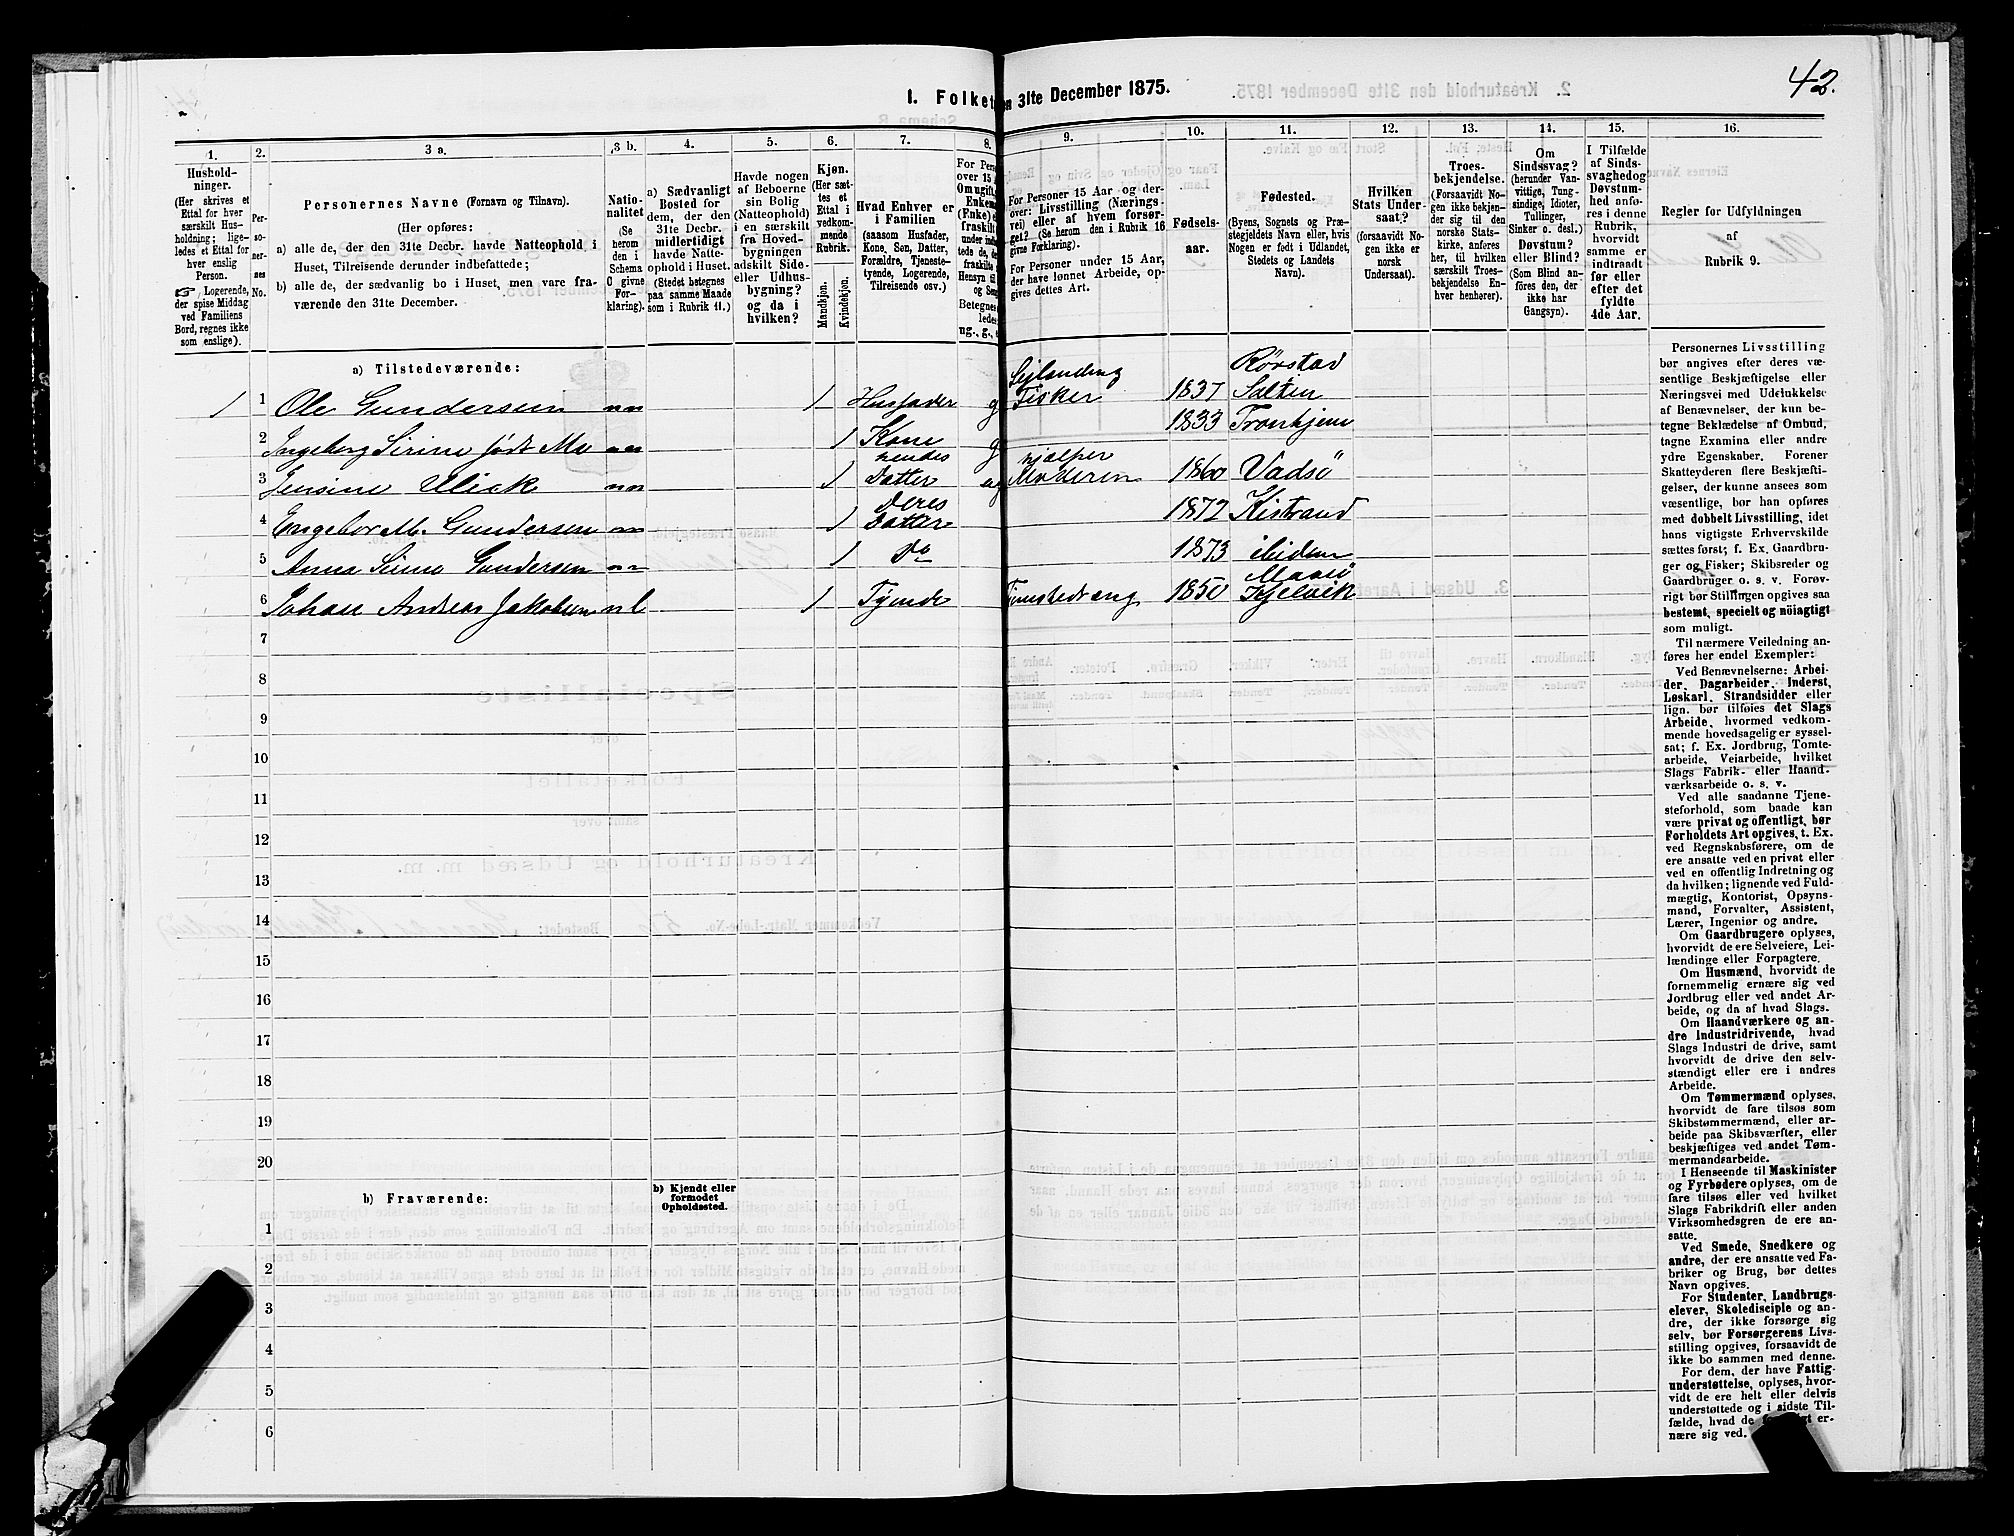 42.
1. Folket
en 31te December 1875.
1.
2.
3 a.
3 b.
4.
5.
6.
7.
8.
9.
10.
11.
12.
13.
14.
15.
16.
Husholdninger.
(Her skrives et
Ettal for hver
særskilt Husholdning;
ligeledes et Ettal for
hver enslig
Person.
Logerende,
der spise Middag
ved Familiens
Bord, regnes ikke
som enslige).
Personernes
No.
Personernes Navne (Fornavn og Tilnavn).
(Her opføres:
a) alle de, der den 31te Decbr. havde Natteophold i
Huset, Tilreisende derunder indbefattede;
b) alle de, der sædvanlig bo i Huset, men vare fraværende
den 31te December.
Nationalitet
(Se
herom
den i
Schema
O givne
Forklaring).
a) Sædvanligt
Bosted for
dem, der den
31te Decbr.
midlertidigt
havde Natteophold
i Huset.
(Stedet betegnes
paa samme Maade
som i Rubrik 11.)
Havde nogen
af Beboerne
sin Bolig
(Natteophold)
i en særskilt
fra Hovedbygningen
adskilt Side-
eller Udhusbygning?
og da i
hvilken?
Kjøn.
(Her sættes
et
Ettal i
vedkommende
Rubrik.
Mandkjøn.
Kvindekjøn.
Hvad Enhver er
i Familien
(saasom Husfader,
Kone, Søn, Datter,
Forældre, Tjenestetyende,
Logerende,
Tilreisende osv.)
For Pers
over 15
Omugift,
Enkem
(Enke) e
fraskilt
under indt
tede de, de
fraskilte
Hensyn til
og Seng
Betegnes
ledes
ug., g.,
For Personer 15 Aar og derover:
Livsstilling (Næringsvei)
eller af hvem forsørget?
(Se herom den i Rubrik 16
givne Forklaring).
For Personer under 15 Aar,
der have lønnet Arbeide, opgives
dettes Art.
Fødselsaar.
Fødested.
(Byens, Sognets og Præstegjeldets
Navn eller, hvis
Nogen er født i Udlandet,
Stedets og Landets
Navn).
Hvilken
Stats Undersaat?
(forsaavidt Nogen
ikke er
norsk
Undersaat).
Troesbekjendelse.
(Forsaavidt Nogen
ikke bekjender
sig til den
norske Statskirke,
anføres
her, til hvilken
særskilt Troesbekjendelse
Enhver
henhører).
Om
Sindssvag?
(herunder Vanvittige,
Tungsindige,
Idioter,
Tullinger,
Sinker o. desl.)
Døvstum?
eller Blind?
(Som Blind anføres
den, der
ikke har
Gangsyn).
I Tilfælde
af Sindssvaghed og
Døvstumhed
anføres
i denne
Rubrik,
hvorvidt
samme er
indtraadt
før eller
efter det
fyldte
4de Aar.
Regler for Udfyldningen
af
Rubrik 9.
a) Tilstedeværende:
Sejlanding
Rørstad
1 1 Ole Gundersen nn 1 Husfader g Fisker 1837 Salten
2 Ingeborg Sirine født Mo nn 1 Kone g 1833 Tronhjem
hendes
hjælper
3 Jensine Ulick nn 1 Datter ug Moderen 1860 Vadsö
Deres
4 Engebor M. Gundersen nn 1 Datter 1872 Kistrand
5 Anna Sirine Gundersen nn 1 Do 1873 ibidem
Maasö
6 Johan Andreas Jakobsen nl 1 Tyende Tjenestedreng 1850 Kjelvik
7
8
9
10
11
12
13
14
15
16
17
18
19
20
b) Fraværende:
b) Kjendt eller
formodet
Opholdssted.
1
2
3
4
5
6
Personernes Livsstilling
bør angives efter deres væsentlige
Beskjæftigelse eller
Næringsvei med Udelukkelse
af Benævnelser, der kun betegne
Beklædelse af Ombud,
tagne Examina eller andre
ydre Egenskaber. Forener
Skatteyderen flere Beskjæftigelser,
der kunne ansees som
væsentlige, bør han opføres
med dobbelt Livsstilling, idet
hans vigtigste Erhvervskilde
sættes først; f. Ex. Gaardbruger
og Fisker; Skibsreder og
Gaardbruger o. s. v. Forøvrigt
bør Stillingen opgives saa
bestemt, specielt og nöiagtigt
som muligt.
Til nærmere Veiledning anføres
her endel Exempler:
Ved Benævnelserne: Arbeider,
Dagarbeider, Inderst,
Løskarl, Strandsidder eller
lign. bør tilføies det Slags
Arbeide, hvormed vedkommende
hovedsagelig er sysselsat;
f. Ex. Jordbrug, Tomtearbeide,
Veiarbeide, hvilket
Slags Fabrik- eller Haandværksarbeide
o. s. v.
Ved alle saadanne Tjenesteforhold,
som baade kan
være privat og offentligt, bør
Forholdets Art opgives, t. Ex.
ved Regnskabsførere, om de
ere ansatte ved en privat eller
ved en offentlig Indretning og
da hvilken; lignende ved Fuldmægtig,
Kontorist, Opsynsmand,
Forvalter, Assistent,
Lærer, Ingeniør og andre.
Om Gaardbrugere oplyses,
hvorvidt de ere Selveiere, Leilændinge
eller Forpagtere.
Om Husmænd, hvorvidt de
fornemmelig ernære sig ved
Jordbrug eller ved andet Arbeide,
og da af hvad Slags.
Om Haandværkere og andre
Industridrivende, hvad
Slags Industri de drive, samt
hvorvidt de drive den selvstændigt
eller ere i andres
Arbeide.
Om Tømmermænd oplyses,
hvorvidt de fare tilsøs som
Skibstømmermænd, eller arbeide
paa Skibsværfter, eller
beskjæftiges ved andet Tømmermandsarbeide.
I Henseende til Maskinister
og Fyrbødere oplyses, om de
fare tilsøs eller ved hvilket
Slags Fabrikdrift anden
Virksomhedsgren de ere ansatte.
Ved Smede, Snedkere og
andre, der ere ansatte ved Fabriker
og Brug, bør dettes
Navn opgives.
For Studenter, Landbrugselever,
Skoledisciple og andre,
der ikke forsørge sig
selv, bør Forsørgerens Livsstilling
opgives, forsaavidt de
ikke bo sammen med denne.
For dem, der have Fattigunderstøttelse,
oplyses, hvorvidt
de ere helt eller delvis
understøttede og i sidste Tilfælde,
hvad de ernære
sig ved.